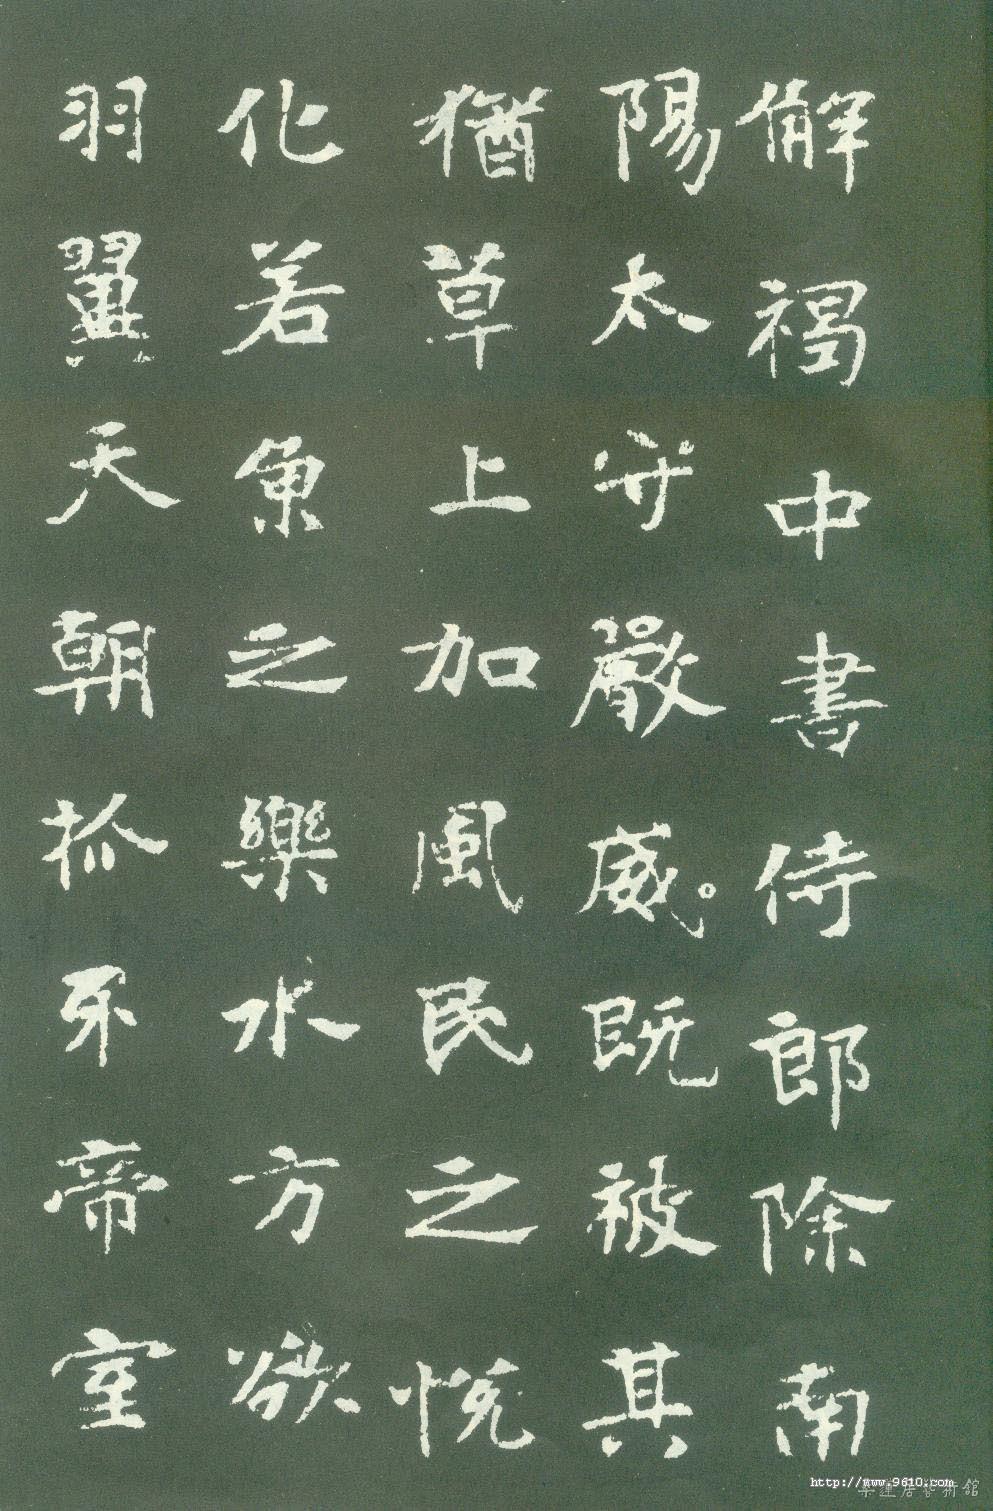 解褐中書侍郎除南
陽太守嚴威。既被其
猶草上加風民之悅
化若魚之樂水方欲
羽翼天朝抓牙帝室
http://www.9610.com
樂蓮居藝術館